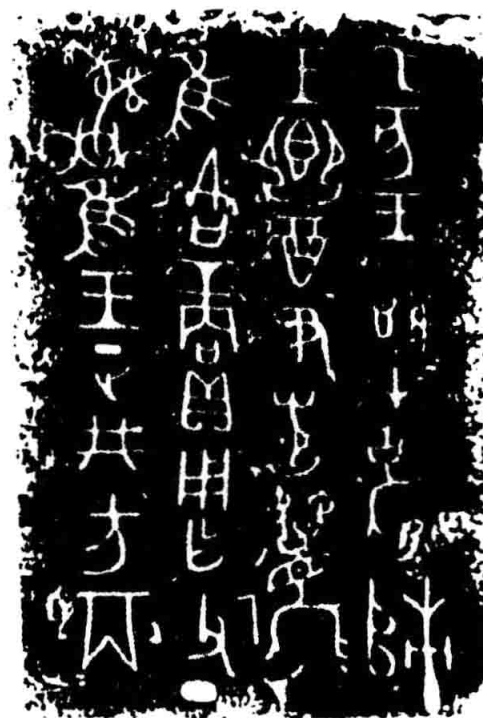 乙亥王才𠂤
王鄉酉尹光邐
隹各商貝用乍父丁
彝隹王正井方𠀬